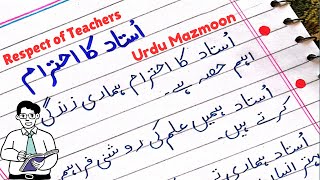 Respect of Teachers
Urdu Mazmoon
اُستاد کا احترام
اُستاد کا احترام ہماری زندگی
اہم حصہ ہے۔
اُستاد ہمیں علم کی روشنی فراہم
کرتے ہیں۔
اُستاد ہماری